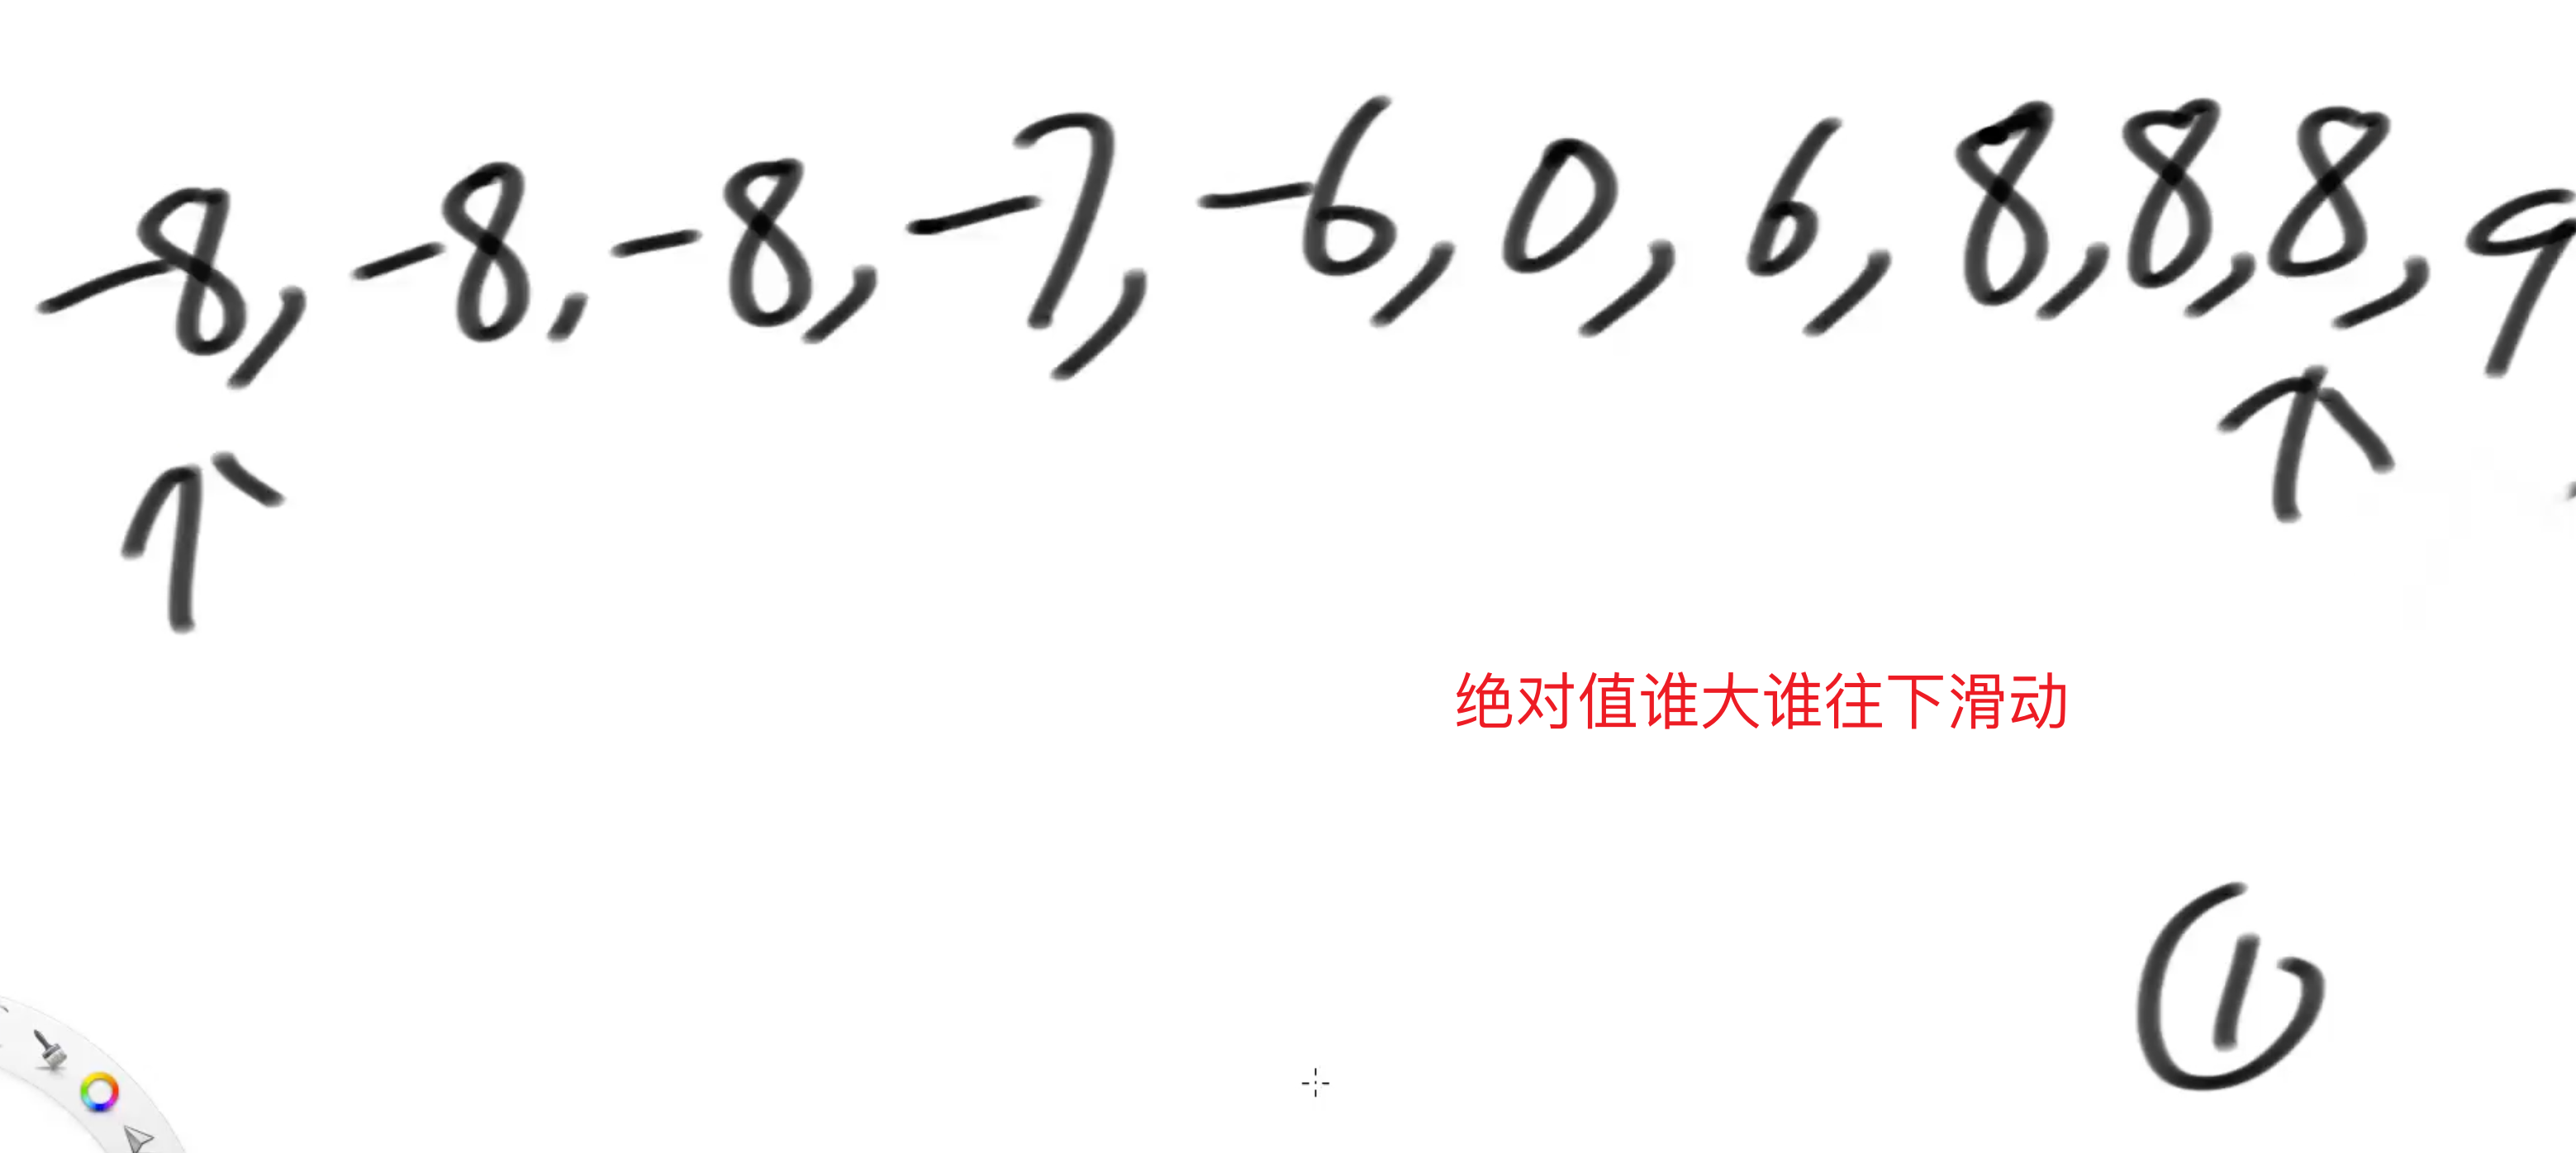 -8, -8, -8, -7, -6, 0, 6, 8, 8, 8, 9
绝对值谁大谁往下滑动
①